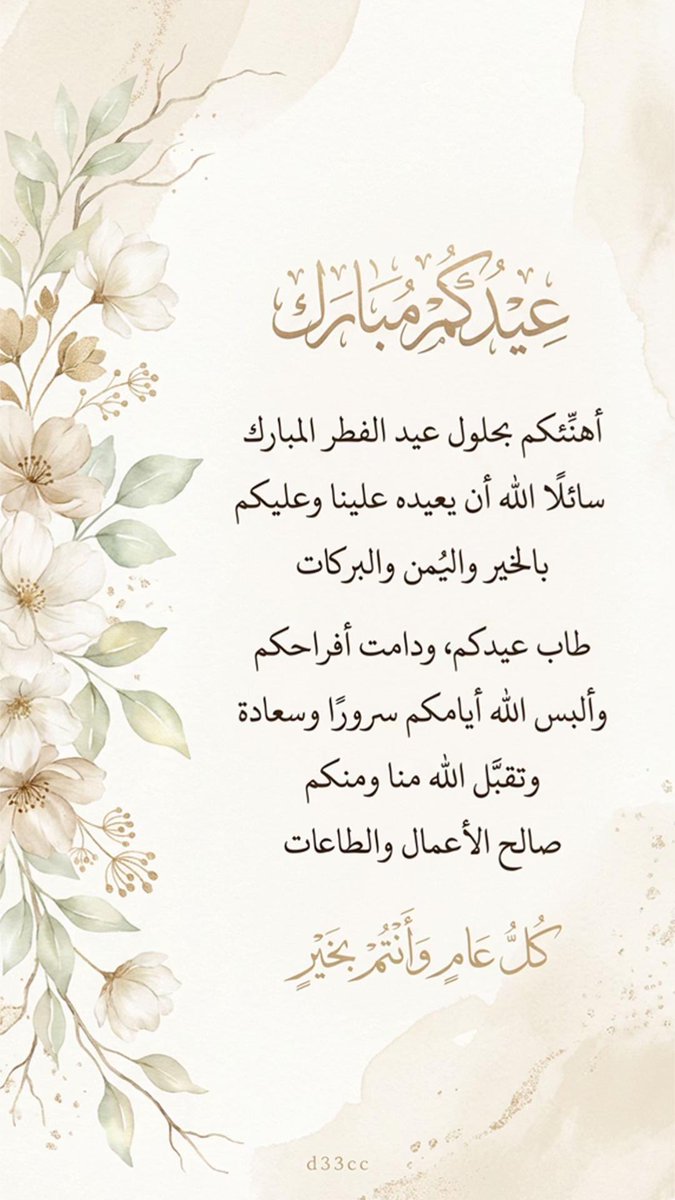 عِيْدُكُمْ مُبَارَك
أهنِّئكم بحلول عيد الفطر المبارك
سائلًا الله أن يعيده علينا وعليكم
بالخير واليُمن والبركات
طاب عيدكم، ودامت أفراحكم
وألبس الله أيامكم سرورًا وسعادة
وتقبَّل الله منا ومنكم
صالح الأعمال والطاعات
كُلُّ عَامٍ وَأَنْتُمْ بِخَيْرٍ
d33cc